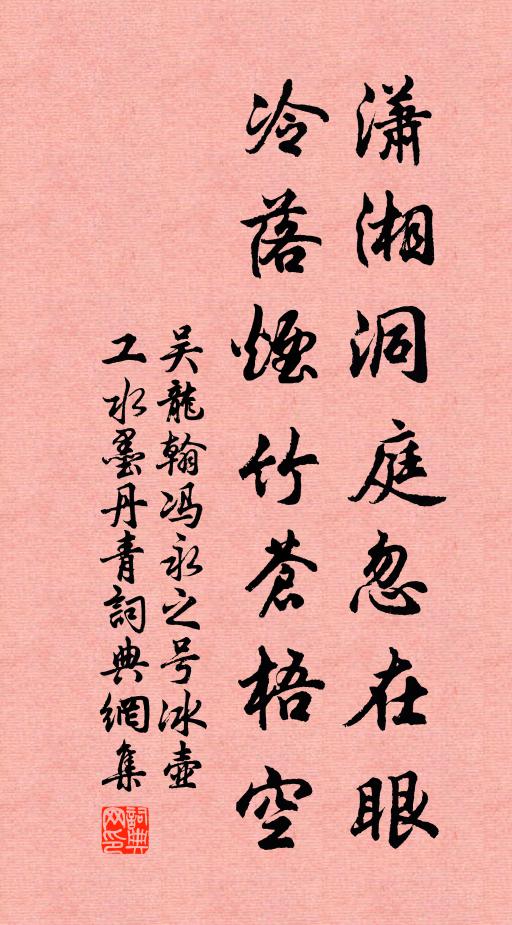 潇湘洞庭忽在眼
冷落煙竹蒼梧空
吴龍翰冯永之号冰壶
工水墨丹青詞典網集
詞典网印